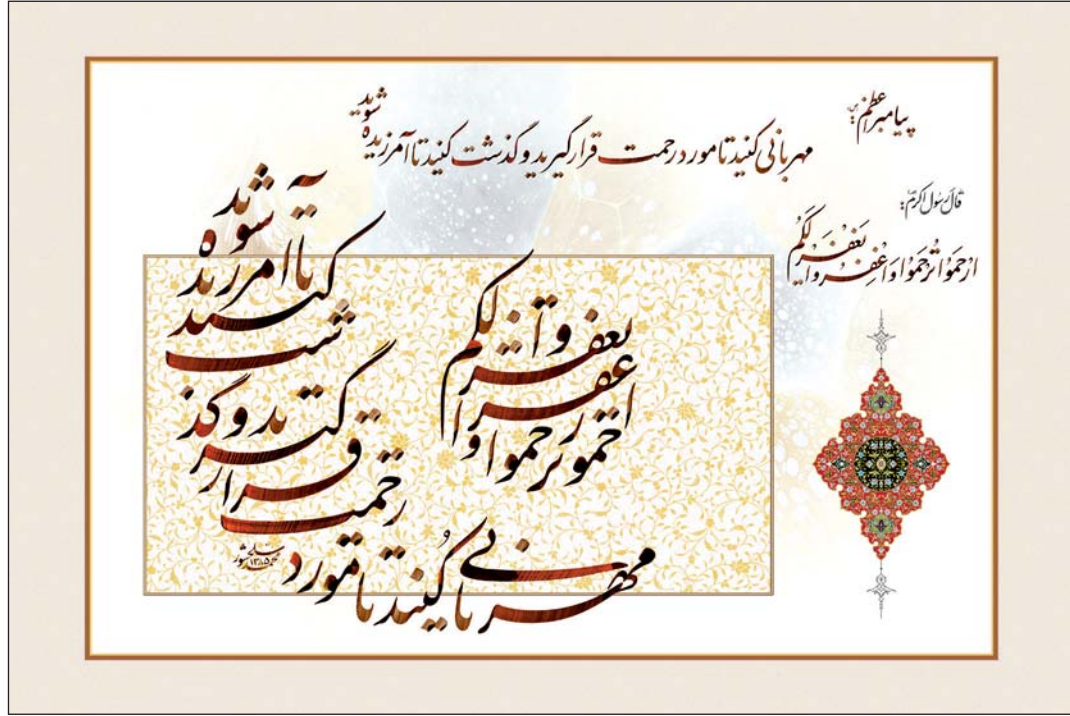 پیامبر اعظم (ص):
مهربانی کنید تا مورد رحمت قرار گیرید و گذشت کنید تا آمرزیده شوید
قال رسول اکرم (ص):
ارْحَمُوا تُرْحَمُوا وَاغْفِرُوا یَغْفِرْ لَکُمْ
ارحمو ترحموا و اغفروا یغفر لکم
مهربانی کنید تا مورد
رحمت
قرار
گیرید و گذ
شت
کنید
تا آمرزیده
شوید
۱۳۸۵